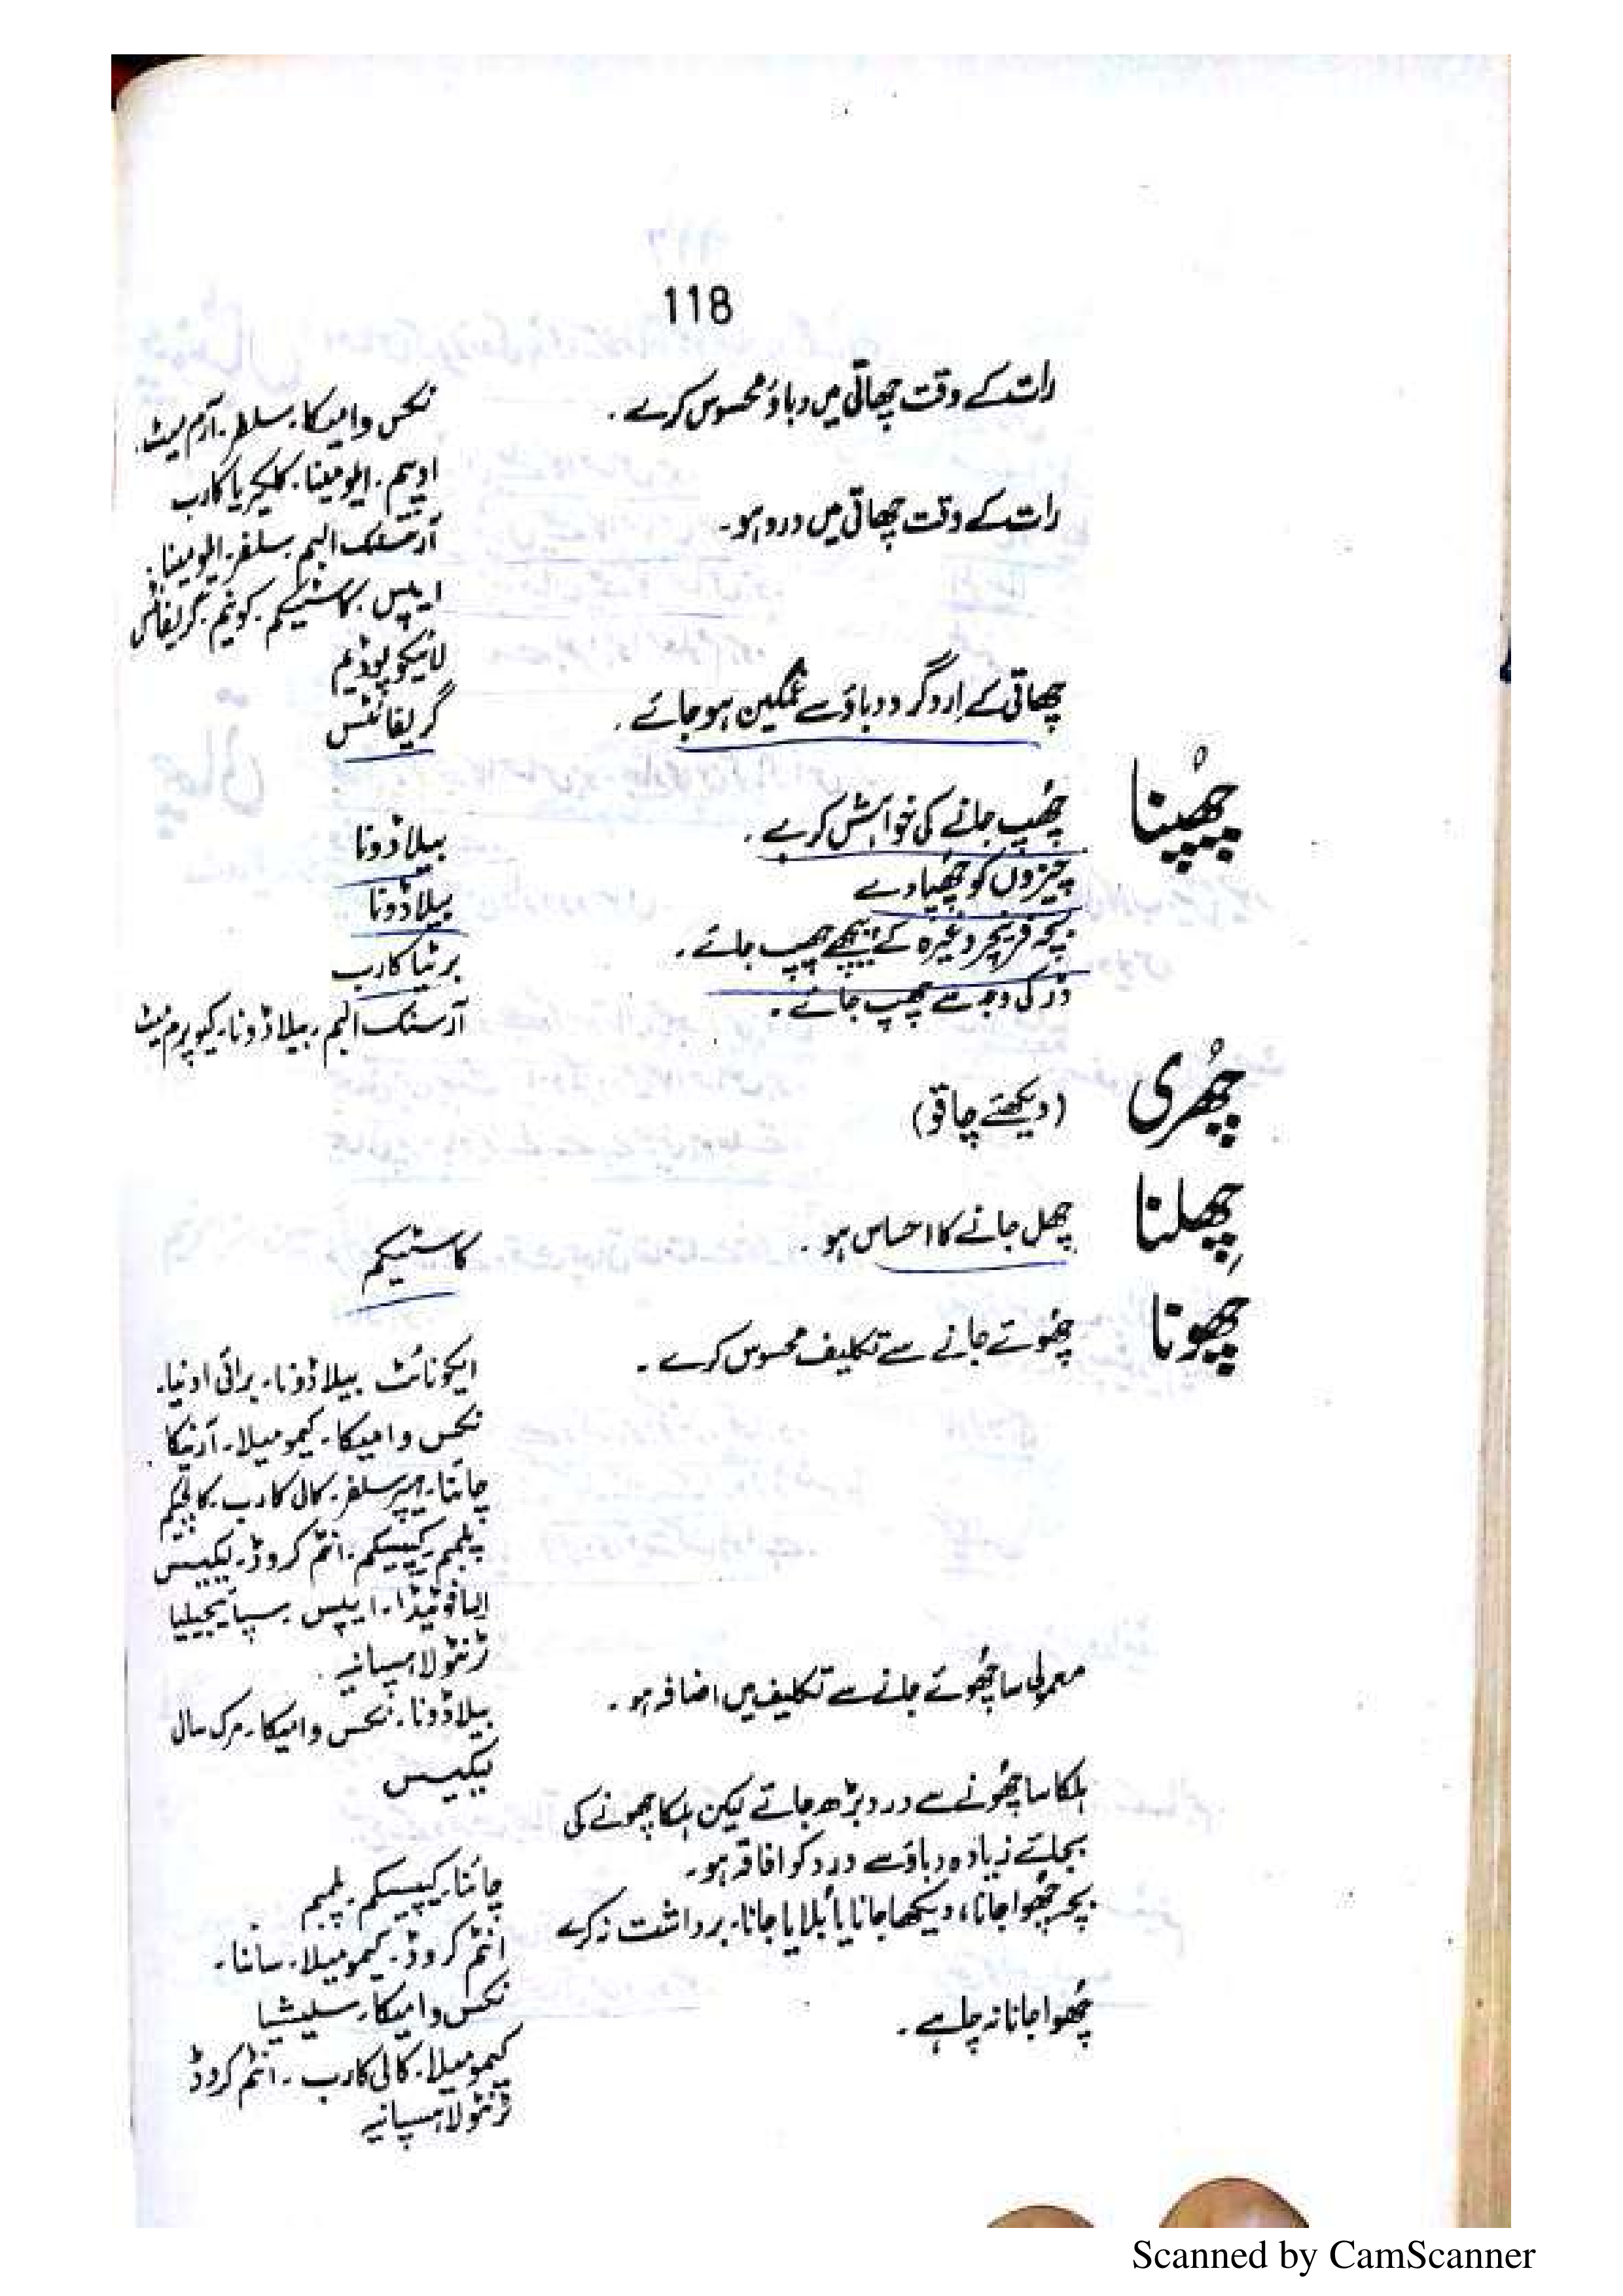 118
رات کے وقت چھاتی میں دباؤ محسوس کرے۔
نکس وامیکا۔ سلفر۔ آرم میٹ۔
اوپیم۔ ایلومینا۔ کلکیریا کارب
رات کے وقت چھاتی میں درد ہو۔
آرسنک البم۔ سلفر۔ ایلومینا۔
ایپس۔ کاسٹیکم۔ کونیم۔ گریفائٹس
لائیکوپوڈیم
چھاتی کے اِردگرد دباؤ سے غمگین ہو جائے۔
گریفائٹس
چھُپنا
چھُپ جانے کی خواہش کرے۔
بیلاڈونا
چیزوں کو چھُپا دے
بیلاڈونا
بچہ فرنیچر وغیرہ کے پیچھے چھپ جائے۔
برٹیا کارب
ڈر کی وجہ سے چھپ جائے۔
آرسنک البم۔ بیلاڈونا۔ کیوپرم میٹ
چھُری
(دیکھئے چاقو)
چھِلنا
چھل جانے کا احساس ہو۔
کاسٹیکم
چھونا
چھُوئے جانے سے تکلیف محسوس کرے۔
ایکونائٹ بیلاڈونا۔ برائی اونیا۔
نکس وامیکا۔ کیمومیلا۔ آرنیکا
چائنا۔ ہیپر سلفر۔ کالی کارب۔ کالچیکم
پلمبم۔ کیپسیکم۔ انٹم کروڈ۔ لیکیسس
ایسافوٹیڈا۔ ایپس۔ سپائیجیلیا
ٹرنٹولا ہسپانیہ۔
معمولی سا چھُوئے جانے سے تکلیف میں اضافہ ہو۔
بیلاڈونا۔ نکس وامیکا۔ مرک سال
لیکیسس
ہلکا سا چھُونے سے درد بڑھ جائے لیکن ہلکا چھونے کی
بجائے زیادہ دباؤ سے درد کو افاقہ ہو۔
چائنا۔ کیپسیکم۔ پلمبم
بچہ چھُوا جانا، دیکھا جانا یا بُلایا جانا۔ برداشت نہ کرے
انٹم کروڈ۔ کیمومیلا۔ سائنا۔
نکس وامیکا۔ سلیشیا
چھُوا جانا نہ چاہے۔
کیمومیلا۔ کالی کارب۔ انٹم کروڈ
ٹرنٹولا ہسپانیہ
Scanned by CamScanner